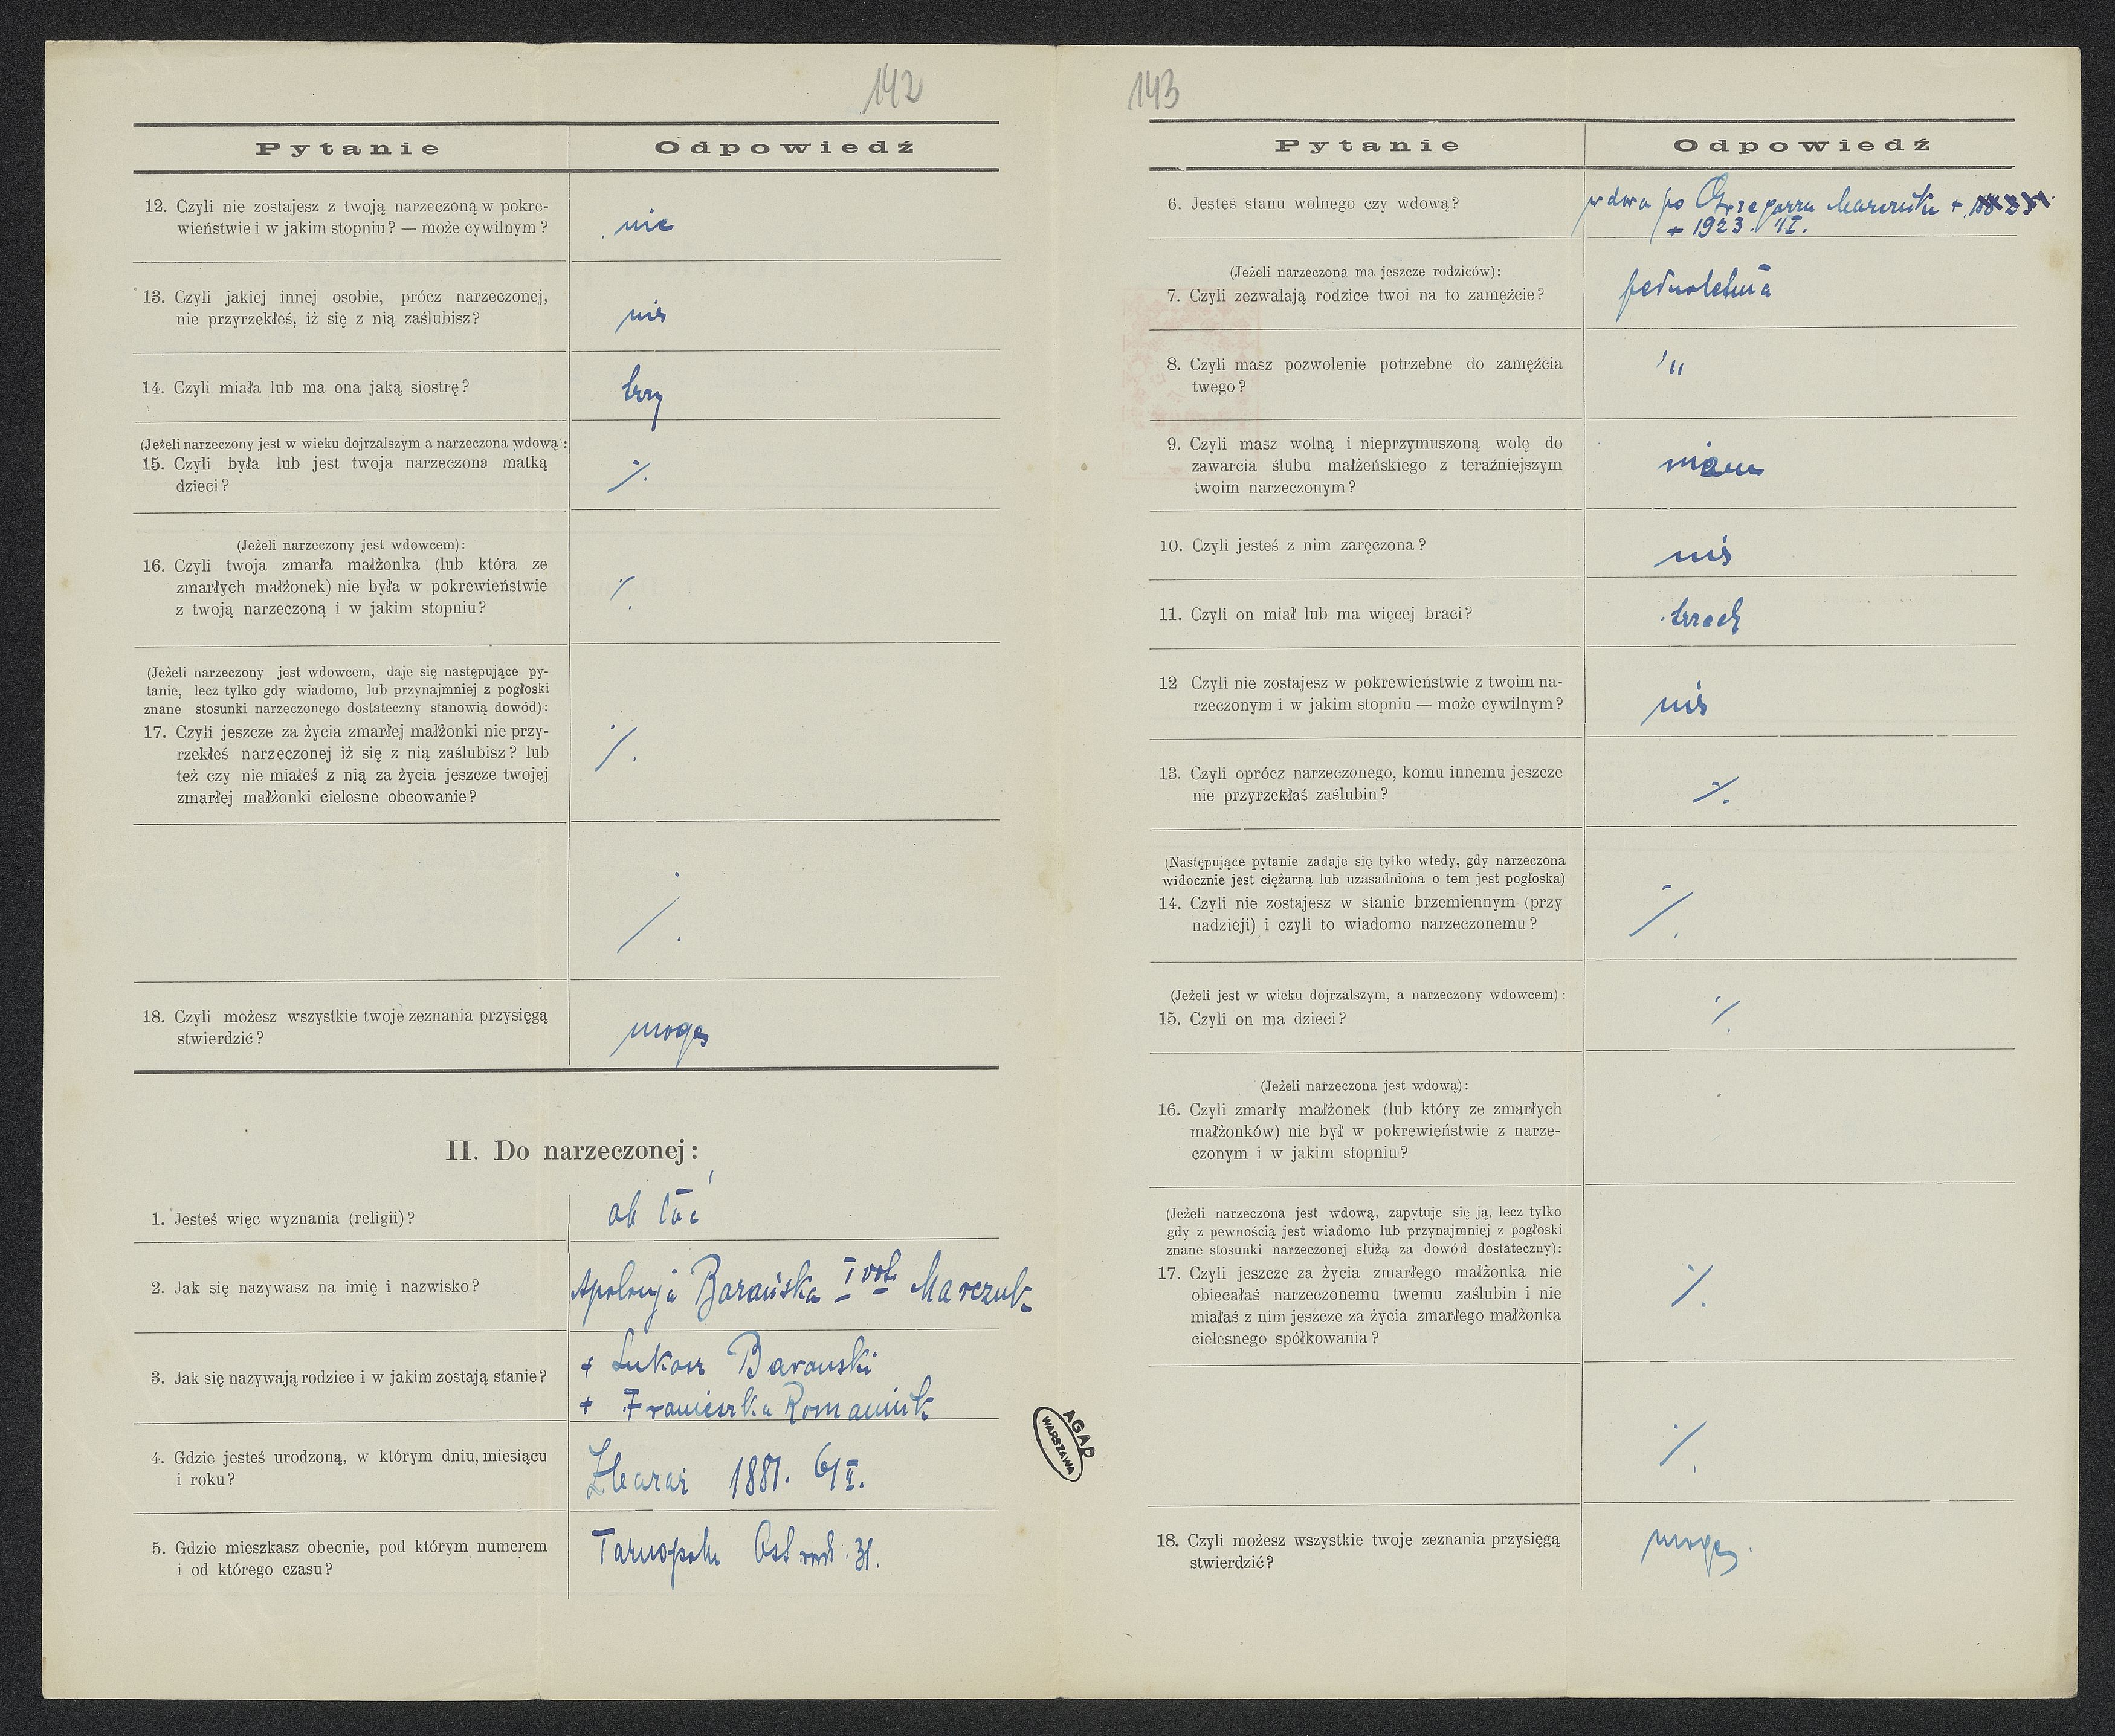 142
Pytanie Odpowiedź
12. Czyli nie zostajesz z twoją narzeczoną w pokre-
wieństwie i w jakim stopniu? — może cywilnym?
nie
13. Czyli jakiej innej osobie, prócz narzeczonej,
nie przyrzekłeś, iż się z nią zaślubisz?
nie
14. Czyli miała lub ma ona jaką siostrę?
trzy
(Jeżeli narzeczony jest w wieku dojrzalszym a narzeczona wdową):
15. Czyli była lub jest twoja narzeczona matką
dzieci?
%
(Jeżeli narzeczony jest wdowcem):
16. Czyli twoja zmarła małżonka (lub która ze
zmarłych małżonek) nie była w pokrewieństwie
z twoją narzeczoną i w jakim stopniu?
%
(Jeżeli narzeczony jest wdowcem, daje się następujące py-
tanie, lecz tylko gdy wiadomo, lub przynajmniej z pogłoski
znane stosunki narzeczonego dostateczny stanowią dowód):
17. Czyli jeszcze za życia zmarłej małżonki nie przy-
rzekłeś narzeczonej iż się z nią zaślubisz? lub
też czy nie miałeś z nią za życia jeszcze twojej
zmarłej małżonki cielesne obcowanie?
%
%
18. Czyli możesz wszystkie twoje zeznania przysięgą
stwierdzić?
mogę
II. Do narzeczonej:
1. Jesteś więc wyznania (religii)?
ob łać
2. Jak się nazywasz na imię i nazwisko?
Apolonja Barańska I vot. Marczuk
3. Jak się nazywają rodzice i w jakim zostają stanie?
+ Łukasz Barański
+ Franciszka Romaniuk
4. Gdzie jesteś urodzoną, w którym dniu, miesiącu
i roku?
Zbaraż 1881. 6/II.
5. Gdzie mieszkasz obecnie, pod którym numerem
i od którego czasu?
Tarnopolu 31.
AGAD
WARSZAWA
143
Pytanie Odpowiedź
6. Jesteś stanu wolnego czy wdową?
wdowa po Grzegorzu Marczuku +
+ 1923.
(Jeżeli narzeczona ma jeszcze rodziców):
7. Czyli zezwalają rodzice twoi na to zamęźcie?
pełnoletnia
8. Czyli masz pozwolenie potrzebne do zamęźcia
twego?
"
9. Czyli masz wolną i nieprzymuszoną wolę do
zawarcia ślubu małżeńskiego z teraźniejszym
twoim narzeczonym?
mam
10. Czyli jesteś z nim zaręczona?
nie
11. Czyli on miał lub ma więcej braci?
trzech
12 Czyli nie zostajesz w pokrewieństwie z twoim na-
rzeczonym i w jakim stopniu — może cywilnym?
nie
13. Czyli oprócz narzeczonego, komu innemu jeszcze
nie przyrzekłaś zaślubin?
%
(Następujące pytanie zadaje się tylko wtedy, gdy narzeczona
widocznie jest ciężarną lub uzasadniona o tem jest pogłoska)
14. Czyli nie zostajesz w stanie brzemiennym (przy
nadzieji) i czyli to wiadomo narzeczonemu?
%
(Jeżeli jest w wieku dojrzalszym, a narzeczony wdowcem):
15. Czyli on ma dzieci?
%
(Jeżeli narzeczona jest wdową):
16. Czyli zmarły małżonek (lub który ze zmarłych
małżonków) nie był w pokrewieństwie z narze-
czonym i w jakim stopniu?
(Jeżeli narzeczona jest wdową, zapytuje się ją, lecz tylko
gdy z pewnością jest wiadomo lub przynajmniej z pogłoski
znane stosunki narzeczonej służą za dowód dostateczny):
17. Czyli jeszcze za życia zmarłego małżonka nie
obiecałaś narzeczonemu twemu zaślubin i nie
miałaś z nim jeszcze za życia zmarłego małżonka
cielesnego spółkowania?
%
%
18. Czyli możesz wszystkie twoje zeznania przysięgą
stwierdzić?
mogę